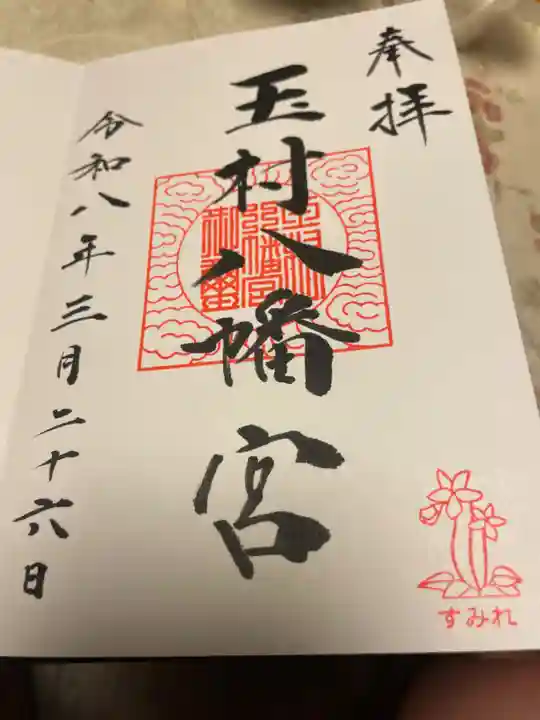 奉拝
玉村八幡宮
令和八年三月二十六日
すみれ